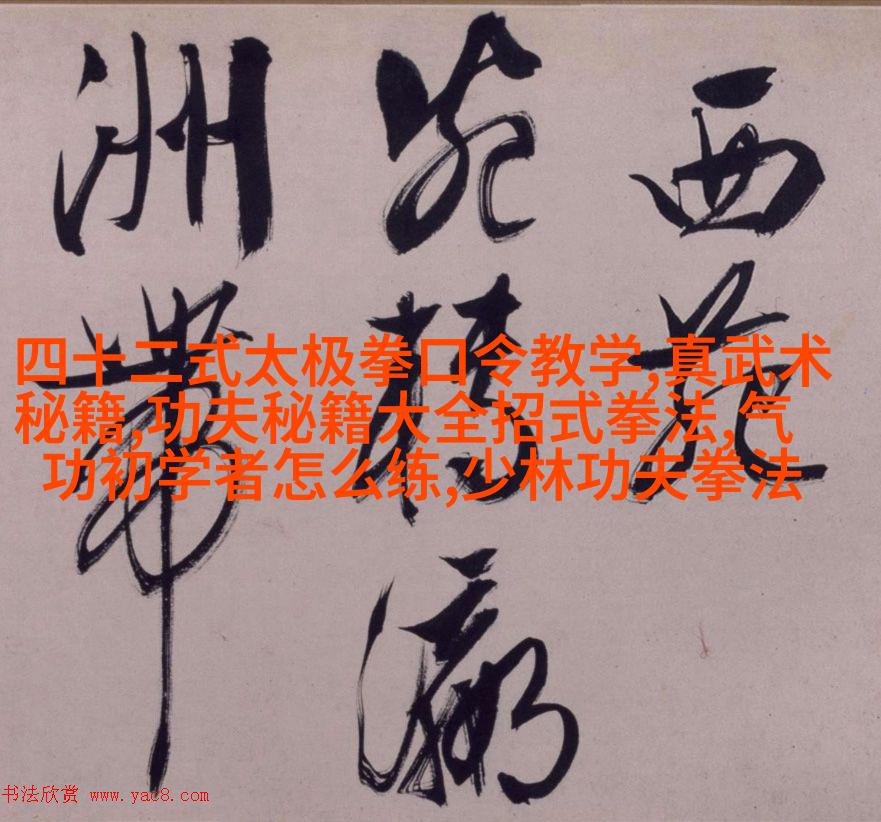 西苑
瀛
洲帶
四十二式太极拳口令教学,真武术
秘籍,功夫秘籍大全招式拳法,气
功初学者怎么练,少林功夫拳法
书法欣赏 www.yac8.com